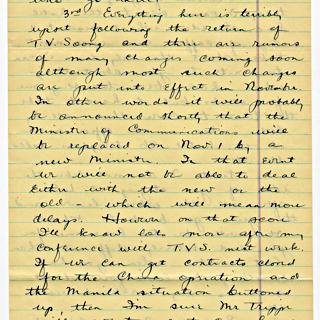 3rd Everything here is terribly
upset following the return of
T.V. Soong and there are rumors
of many changes coming soon
although most such changes
are put into effect in November.
In other words it will probably
be announced shortly that the
Ministry of Communications will
be replaced on Nov. 1 by a
new Minister. In that event
we will not be able to deal
either with the new or the
old - which will mean more
delays. However on that score
I'll know lots more after my
conference with T.V.S. next week.
If we can get contracts closed
for the China operation and
the Manila situation buttoned
up, then I'm sure Mr Trippe